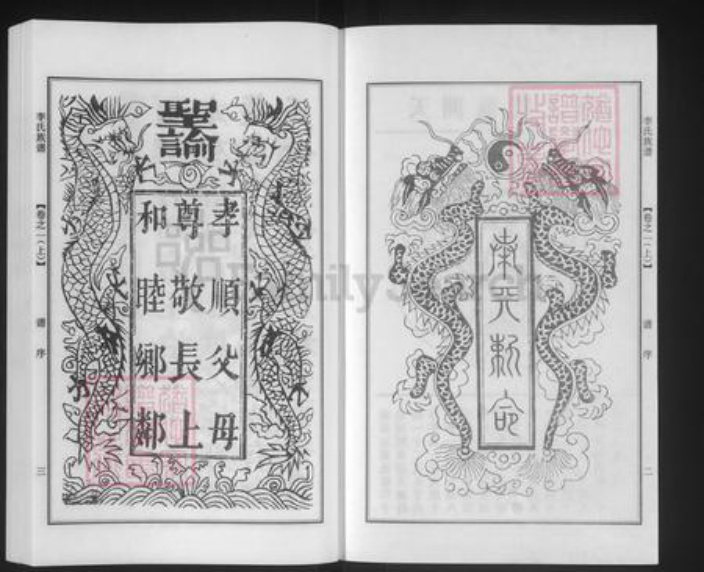 李氏族譜 【卷之一(上)】 譜序 二
奉天勅命
聖諭
孝順父母
尊敬長上
和睦鄉鄰
李氏族譜 【卷之一(上)】 譜序 三
FamilySearch